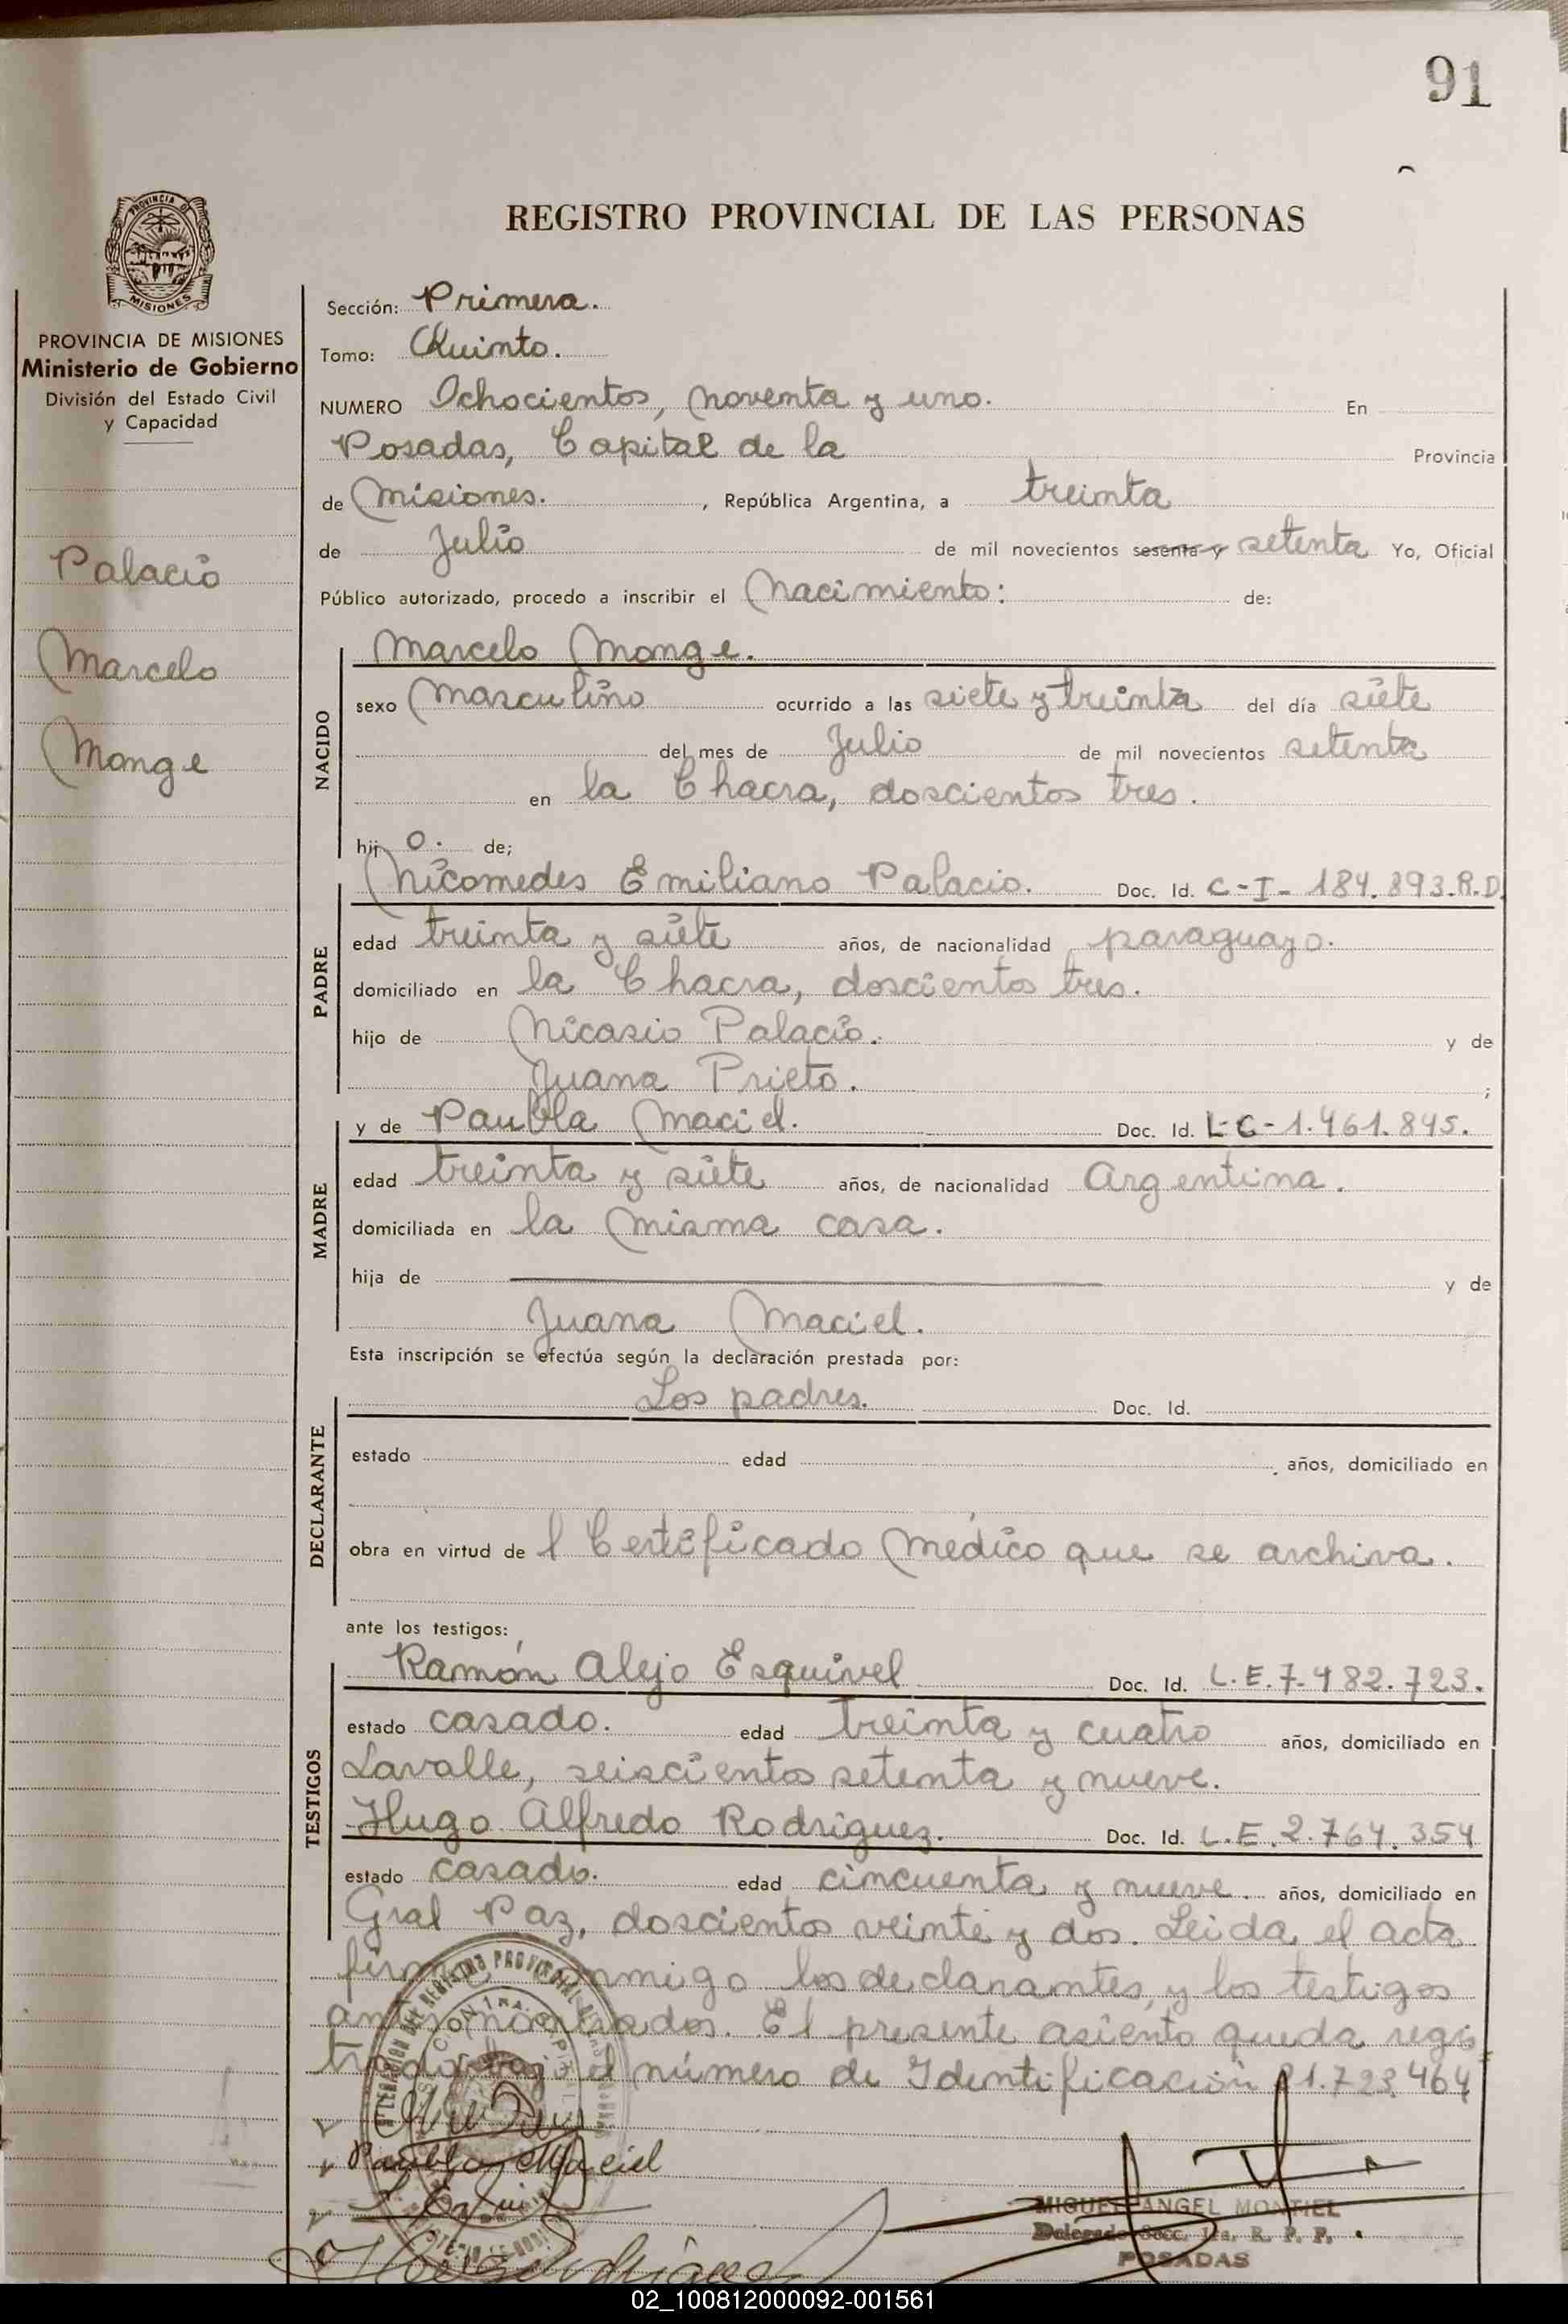 91
REGISTRO PROVINCIAL DE LAS PERSONAS
PROVINCIA DE MISIONES
Ministerio de Gobierno
División del Estado Civil
y Capacidad
Palacio
Marcelo
Monge
Sección: Primera.
Tomo: Quinto.
NUMERO Ochocientos, noventa y uno. En
Posadas, Capital de la Provincia
de Misiones. , República Argentina, a treinta
de Julio de mil novecientos sesenta y setenta Yo, Oficial
Público autorizado, procedo a inscribir el Nacimiento: de:
NACIDO
Marcelo Monge.
sexo Masculino ocurrido a las siete y treinta del día siete
del mes de Julio de mil novecientos setenta
en la Chacra, doscientos tres.
hij o. de;
PADRE
Nicomedes Emiliano Palacio. Doc. Id. C-I- 184.893.R.D.
edad treinta y siete años, de nacionalidad paraguayo.
domiciliado en la Chacra, doscientos tres.
hijo de Nicasio Palacio. y de
Juana Prieto. ;
MADRE
y de Paubla Maciel. Doc. Id. L-C-1.461.845.
edad treinta y siete años, de nacionalidad Argentina.
domiciliada en la misma casa.
hija de y de
Juana Maciel.
Esta inscripción se efectúa según la declaración prestada por:
DECLARANTE
Los padres. Doc. Id.
estado edad años, domiciliado en
obra en virtud de l Certificado Médico que se archiva.
ante los testigos:
TESTIGOS
Ramón Alejo Esquivel Doc. Id. L.E.7.482.723.
estado casado. edad treinta y cuatro años, domiciliado en
Lavalle, seiscientos setenta y nueve.
Hugo Alfredo Rodríguez. Doc. Id. L.E.2.764.354
estado casado. edad cincuenta y nueve. años, domiciliado en
Gral Paz, doscientos veinte y dos. Leida el acta
conmigo los declarantes, y los testigos
El presente asiento queda regis
el número de Identificación 21.723.464
Paubla Maciel
MIGUEL ANGEL MONTIEL
Delegado Secc. 1ra. R. P. P.
POSADAS
02_100812000092-001561